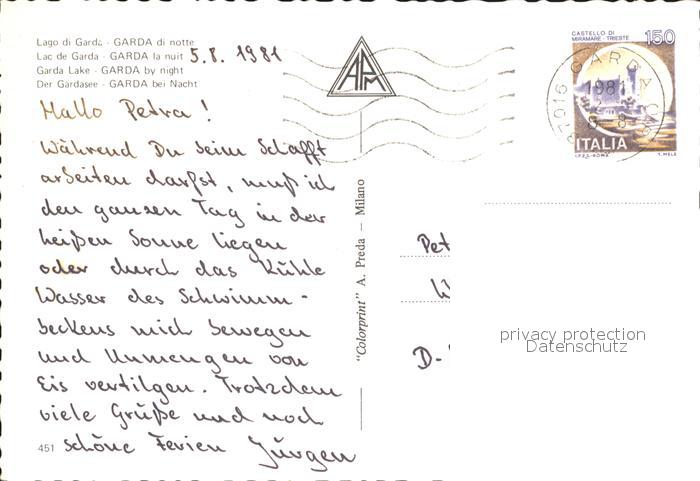 Lago di Garda - GARDA di notte
Lac de Garda - GARDA la nuit
Garda Lake - GARDA by night
Der Gardasee - GARDA bei Nacht
5.8.1981
Hallo Petra!
Während Du beim Schafft
arbeiten darfst, muß ich
den ganzen Tag in der
heißen Sonne liegen
oder durch das kühle
Wasser des Schwimm-
beckens mich bewegen
und Unmengen von
Eis vertilgen. Trotzdem
viele Grüße und noch
schöne Ferien Jürgen
451
"Colorprint" A. Preda - Milano
APM
CASTELLO DI
MIRAMARE - TRIESTE
150
ITALIA
I.P.Z.S.-ROMA
T. MELE
37016 GARDA
1981
Pet
D-
privacy protection
Datenschutz